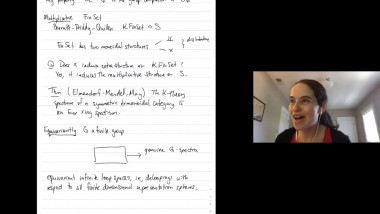 Multiplicative FinSet
Barratt-Priddy-Quillen K FinSet ≃ S
FinSet has two monoidal structures ⊔ × distributive
Q Does × induce extra structure on K FinSet?
Yes, it induces the multiplicative structure on S.
Thm (Elmendorf-Mandell, May) The K-theory
spectrum of a symmetric bimonoidal category is
an E∞ ring spectrum.
Equivariantly G a finite group
genuine G-spectra
equivariant infinite loop spaces, i.e., deloopings with
respect to all finite dimensional representation spheres.